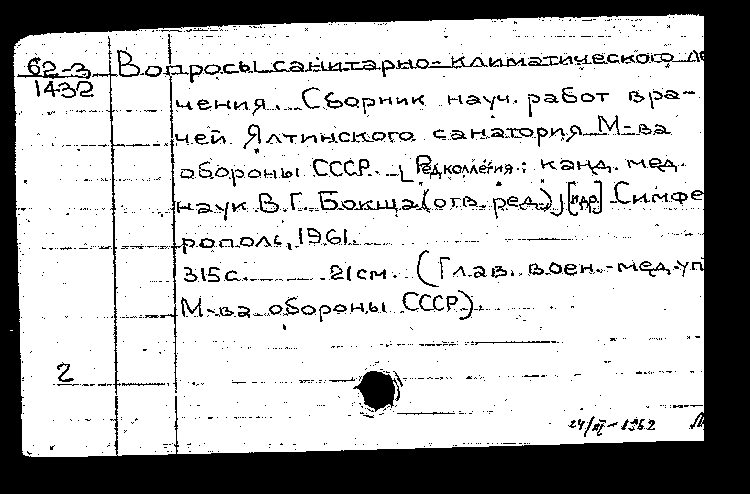 62-3 Вопросы санитарно-климатического ле
1432
чения. Сборник науч. работ вра-
чей Ялтинского санатория М-ва
обороны СССР. [Редколлегия: канд. мед.
наук В.Г. Бокша (отв. ред.) [и др.] Симфе
рополь, 1961.
315 с. 21 см. (Глав. воен.-мед. уп
М-ва обороны СССР).
2
1962